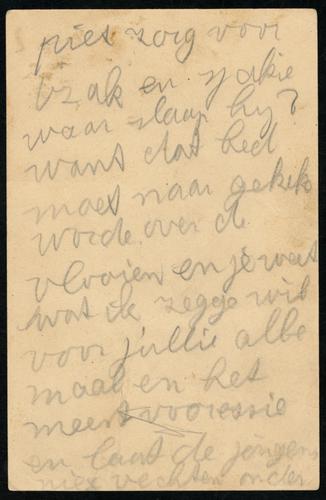 piet zorg voor
Izak en Sjakie
waar slaap hij?
want dat bed
moet naar gekeke
worde over de
vlooien en je weet
wat ik zegge wil
voor jullie alle
maal en het
meest voor
en laat de jongens
niet vechten onder